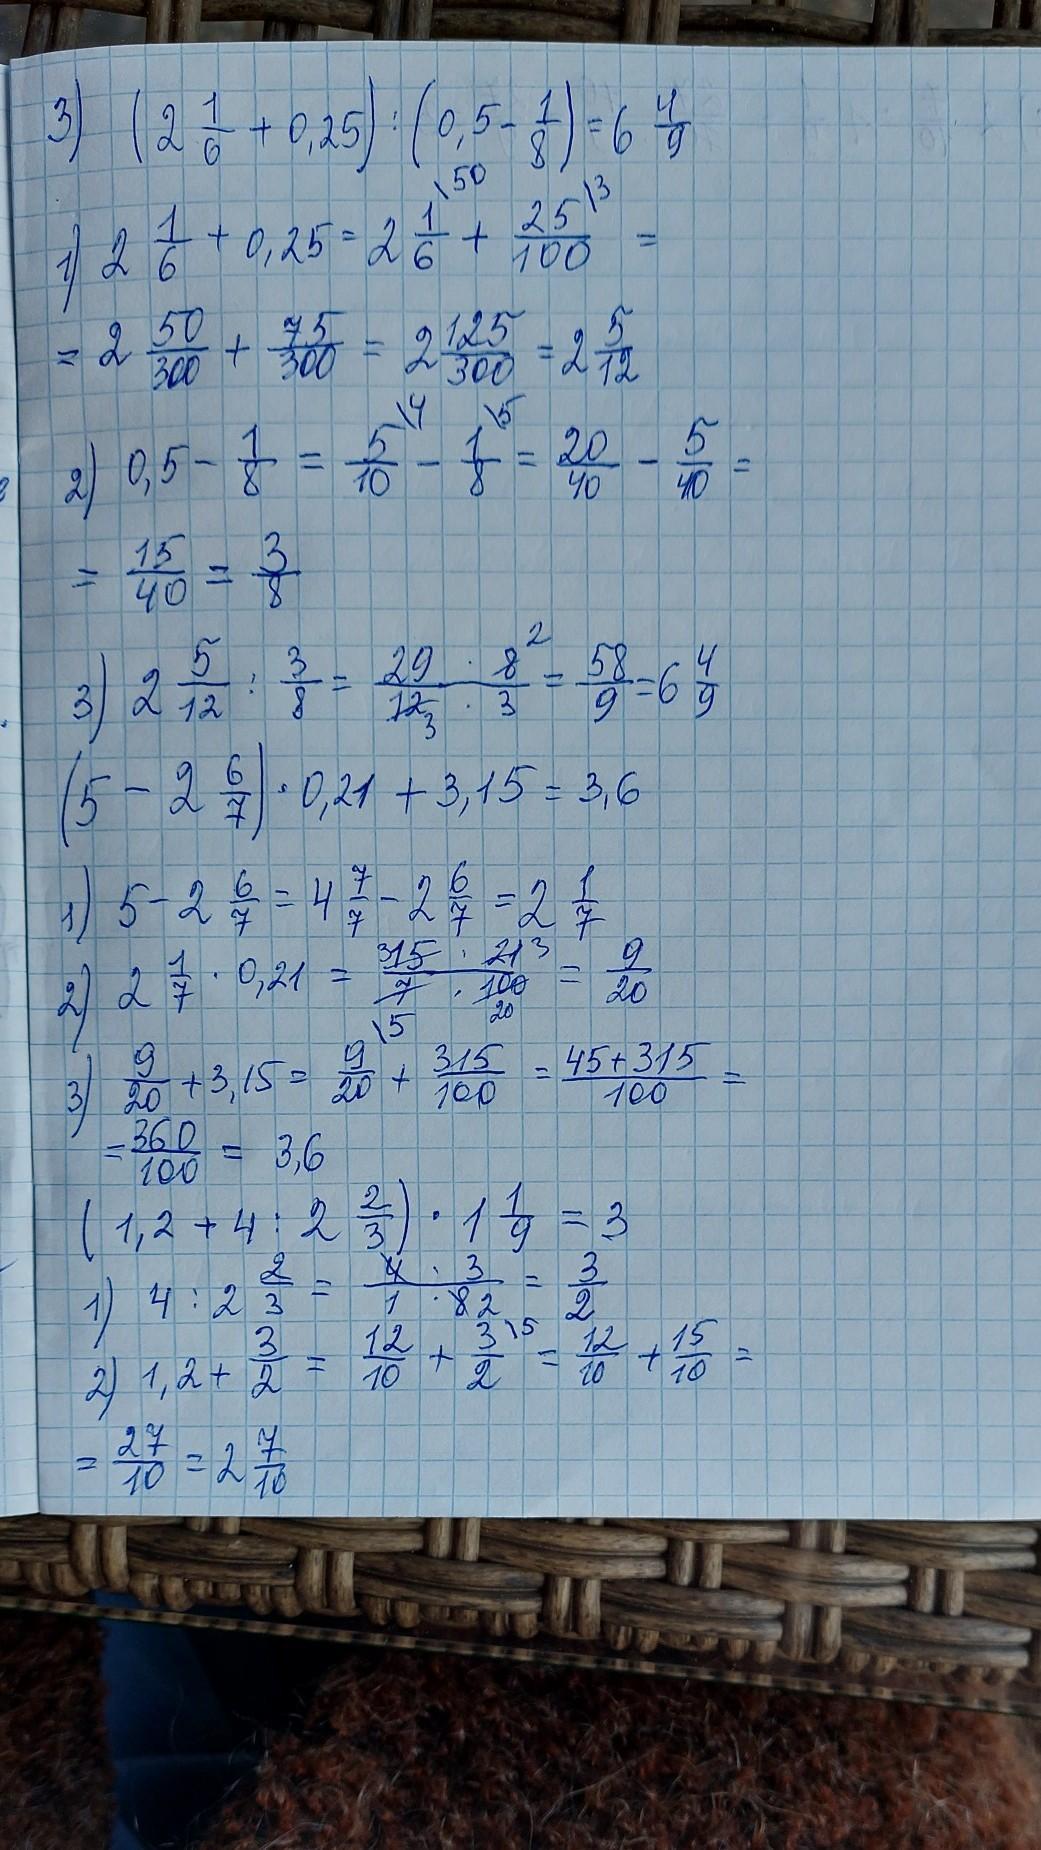 3) (2 1/6 + 0,25) : (0,5 - 1/8) = 6 4/9
1) 2 1/6 + 0,25 = 2 1/6 \50 + 25/100 \3 =
= 2 50/300 + 75/300 = 2 125/300 = 2 5/12
2) 0,5 - 1/8 = 5/10 \4 - 1/8 \5 = 20/40 - 5/40 =
= 15/40 = 3/8
3) 2 5/12 : 3/8 = 29 · 8 2 / 12 3 · 3 = 58/9 = 6 4/9
(5 - 2 6/7) · 0,21 + 3,15 = 3,6
1) 5 - 2 6/7 = 4 7/7 - 2 6/7 = 2 1/7
2) 2 1/7 · 0,21 = 3 15 · 21 3 / 7 · 100 20 = 9/20
3) 9/20 + 3,15 = 9/20 \5 + 315/100 = 45+315/100 =
= 360/100 = 3,6
(1,2 + 4 : 2 2/3) · 1 1/9 = 3
1) 4 : 2 2/3 = 4 · 3 / 1 · 8 2 = 3/2
2) 1,2 + 3/2 = 12/10 + 3/2 \5 = 12/10 + 15/10 =
= 27/10 = 2 7/10